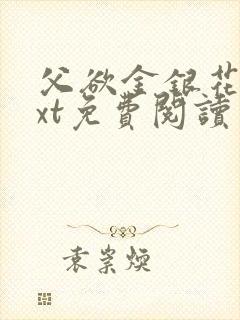 父欲金银花
xt免費閱讀
袁崇煥